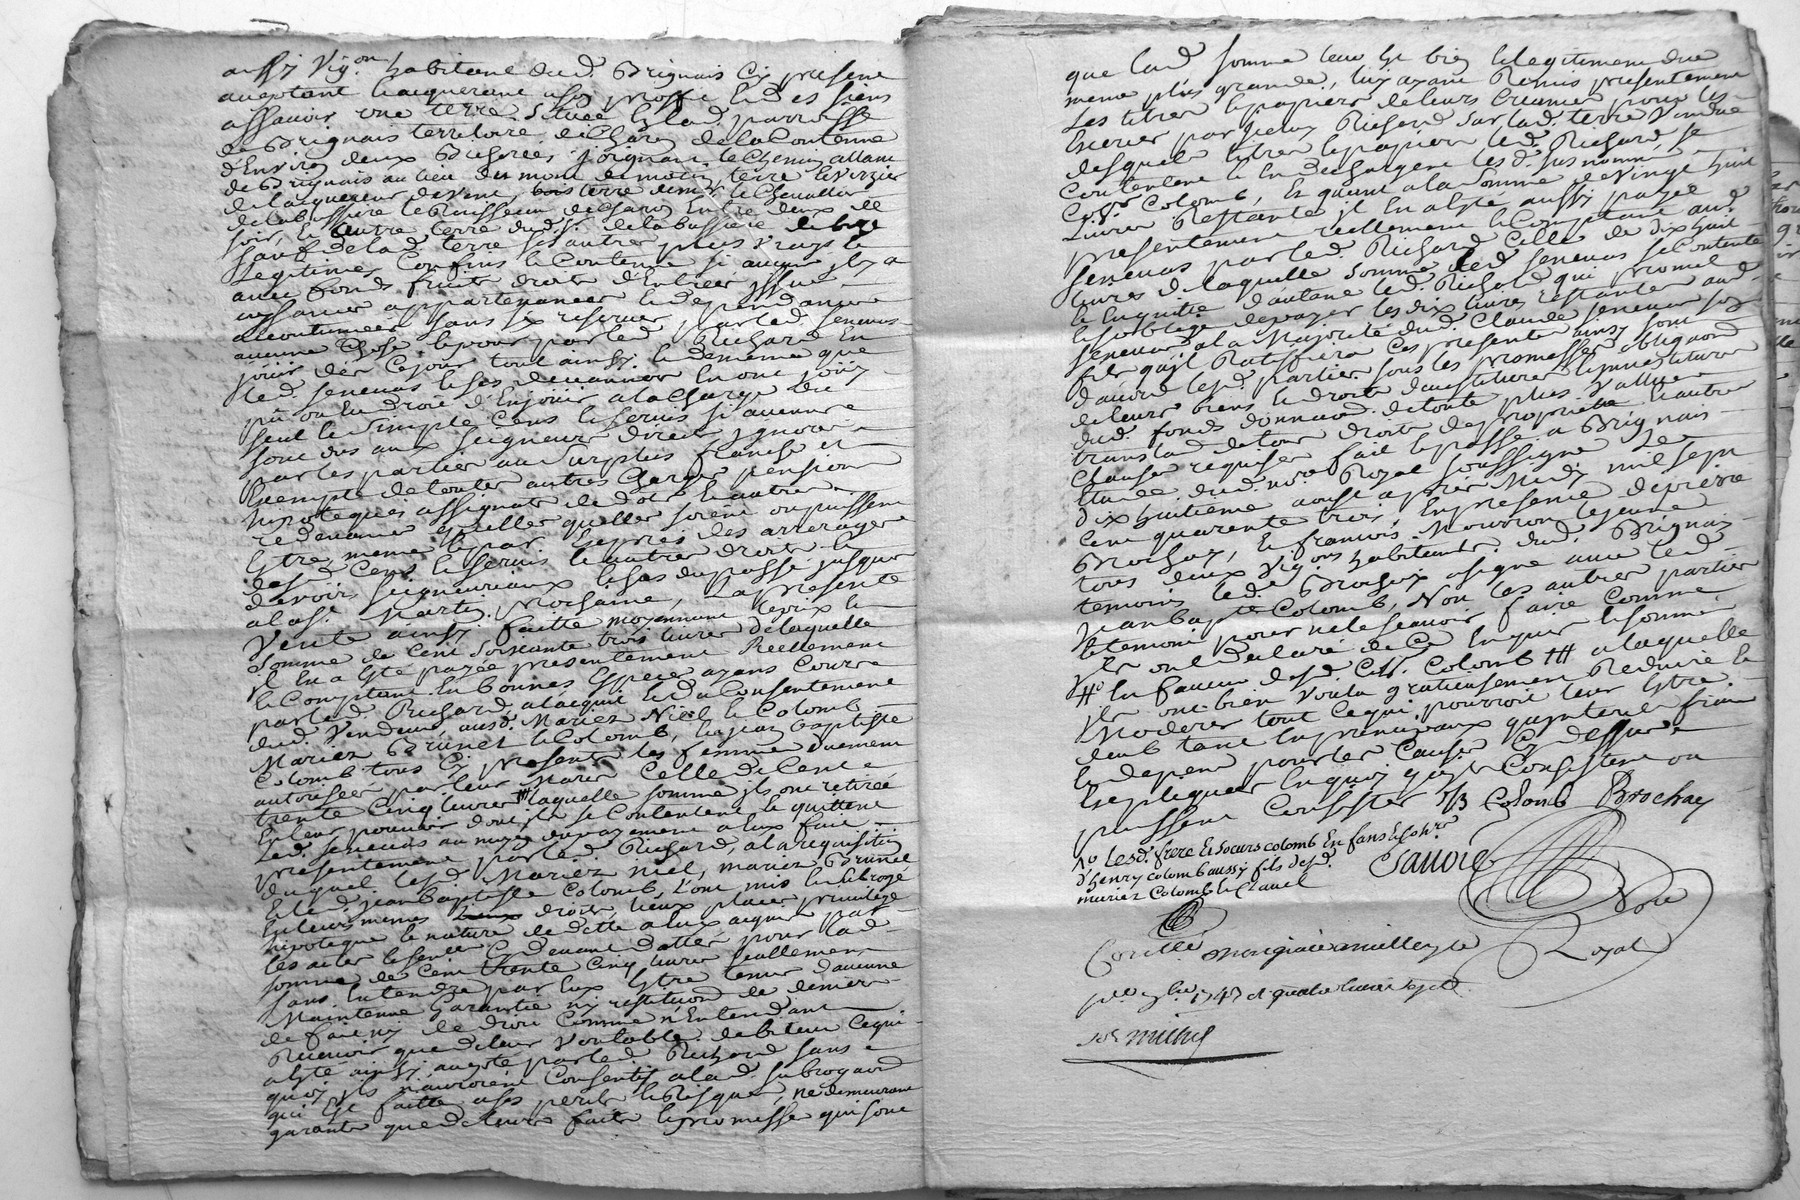 aussy Vig.on habitant dud. Brignais Cy present
aceptant Et acquerant a son proffit Et des siens
assavoir une terre située En lad. parroisse
de Brignais territoire de Charon de la Contenue
d'Environ deux Bicherées joignant le Chemin allant
de Brignais au lieu du mont de matin, terre Et Verzier
de l'acquereur de Vent, terre de m.r le Chevallier
de la bussiere le Ruisseau de Charon Entre deux de
soir, Et autre terre dud. S.r de la bussiere de bize
sauf de lad. terre ses autres plus vrays Et
Legitimes Confins Et Contenue si aucuns il y a
avec fonds fruits droits d'Entrées issues
aysances appartenances Et dependances
accoutumées sans sy reserver par led. senevas
aucune Chose Et pour par led. Richard En
jouir dès Cejour tout ainsy Et de meme que
led. senevas Et ses devanciers En ont jouy
pû ou Eu droit d'En jouir a la Charge du
seul Et simple Cens Et servis si aucuns
sont dus aux seigneurs directs ignorés
par les parties au surplus franche Et
Exempte de toutes autres Charges pensions
hipoteques assignats de dots Et autres
redevances qu'elles quelles soient ou puissent
Estre, meme Et par Exprès des arrerages
desd. Cens Et servis Et autres droits Et
devoirs seigneuriaux Et fas du passé jusques
a la St. Martin prochaine, La presente
Vente ainsy faitte moyennant le prix Et
somme de Cent soixante trois livres de laquelle
il En a Esté payée presentement Reellement
Et Comptant En bonnes Especes ayans Cours
par led. Richard, a l'acquit Et du Consentement
dud. Vendeur, ausd. Mariez Niel Et Colomb
Mariez Brunet Et Colomb, Et jean baptiste
Colomb tous Cy presents les femmes duement
autorisées par leurs Maris Celle de Cent
trente Cinq livres # laquelle somme ils ont retirée
En leur pouvoir dont ils se Contentent Et quittent
Led. senevas au moyen du payement a Eux fait
presentement par led. Richard, a la requisition
duquel lesd. Mariez niel, mariez Brunet
Et led. jean baptiste Colomb, L'ont mis Et subrogé
En leurs memes droits, lieux places privileges
hipoteque Et nature de dette a Eux acquis par
les actes Et sentence Cy devant dattés pour lad.
somme de Cent trente Cinq livres seullement
sans Entendre par Eux Estre tenus d'aucune
Maintenue garantie ny restitution de deniers
de fait ny de droit Comme n'Entendant
Recevoir que de leur Veritable debiteur Cequi
a Esté ainsy accepté par led. Richard sans
quoy ils n'auroient Consentis a lad. subrogation
qui Est faitte a ses perils Et Risques, ne demeurant
garants que de leurs faits Et promesses qui sont
que lad. somme leur Est bien Et legitimement due
meme plus grande, luy ayant Remis presentement
Les titres Et papiers de leurs Creances pour les
Exercer par jcelluy Richard sur lad. terre Vendue
desquels titres Et papiers led. Richard se
Contente Et En decharge lesd. sus nommés
Et quant a la somme de Vingt huit
Livres Restante il En a Esté aussy payée
presentement reellement Et Comptant aud.
senevas par led. Richard Celle de dix huit
livres de laquelle somme led. senevas se Contente
Et En quitte d'autant led. Richard qui promet
Et s'oblige de payer les dix livres restantes aud.
senevas a la Majorité dud. Claude senevas son
fils qu'il Ratiffiera Ces presentes ainsy sont
d'accord lesd. parties sous les promesses obligations
de leurs biens Et droits devestitures Et investitures
dud. fonds donnation de toute plus Vallue
translation de tous droits de proprieté Et autres
Clauses requises fait Et passé a Brignais
Etude dud. no.re Royal soussigné Le
dix huitieme aoust apres Midy mil sept
Cent quarente trois, En presence de pierre
Brochay, Et francois Mourron le jeune
tous deux Vig.ons habitants dud. Brignais
temoins led. Brochay a signé avec led.
jean bap.te Colomb, Non les autres parties
Et temoin pour ne le scavoir faire comme
ils ont declaré de Ce Enquis Et sommés
#.o En faveur desd. Colomb ## a laquelle
ils ont bien voulu gratieusement Reduire Et
Moderer tout Cequi pourroit leur Estre
deub tant En principaux qu'interets frais
Et depens pour les Causes Cy dessus
Expliquées En quoy qu'ils Consistent ou
puissent Consister J B Colomb Brochay
N.o Lesd. frere Et soeurs colomb En fans Et hoirs
d'henry colomb aussy fils desd.
mariez Colomb Et Clavel
Savoie
No.re
Royal
Con.llé
1743 et quatre livres